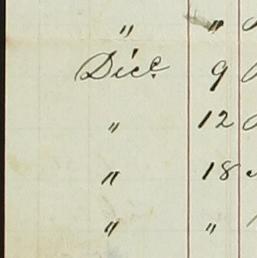 " "
Dice 9
" 12
" 18
" "